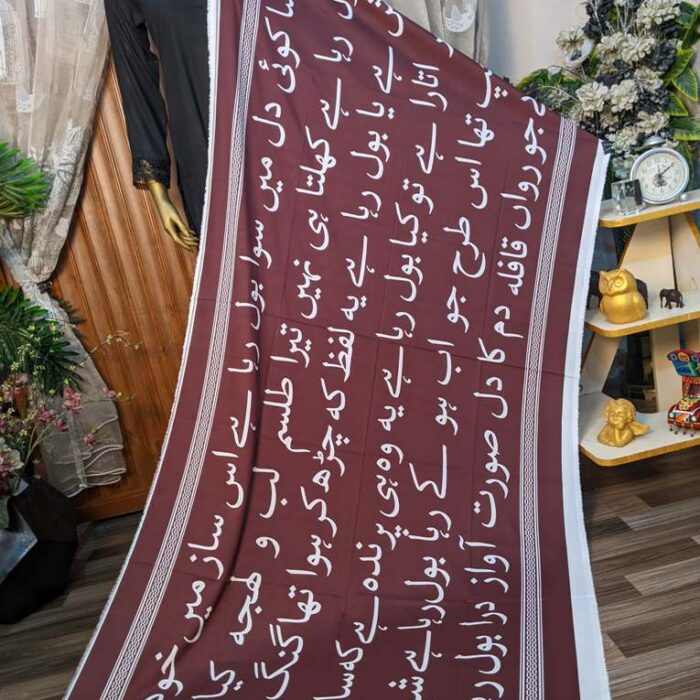 سا کوئی دل میں سوا بول رہا ہے اس ساز میں خود
رہا ہے کھلتا ہی نہیں تیرا طلسم لب و لہجہ کیا
ہے یا بول رہا ہے یہ لفظ کہ چڑھ کر ہوا تھا گنگ
اتارا ہے تو کیا بول رہا ہے یہ وہی پرندہ ہے کہ سا
پ تھا اس طرح جو اب ہو کے رہا بول رہا ہے
جو رواں قافلہ دم کا دل صورت آواز درا بول ر